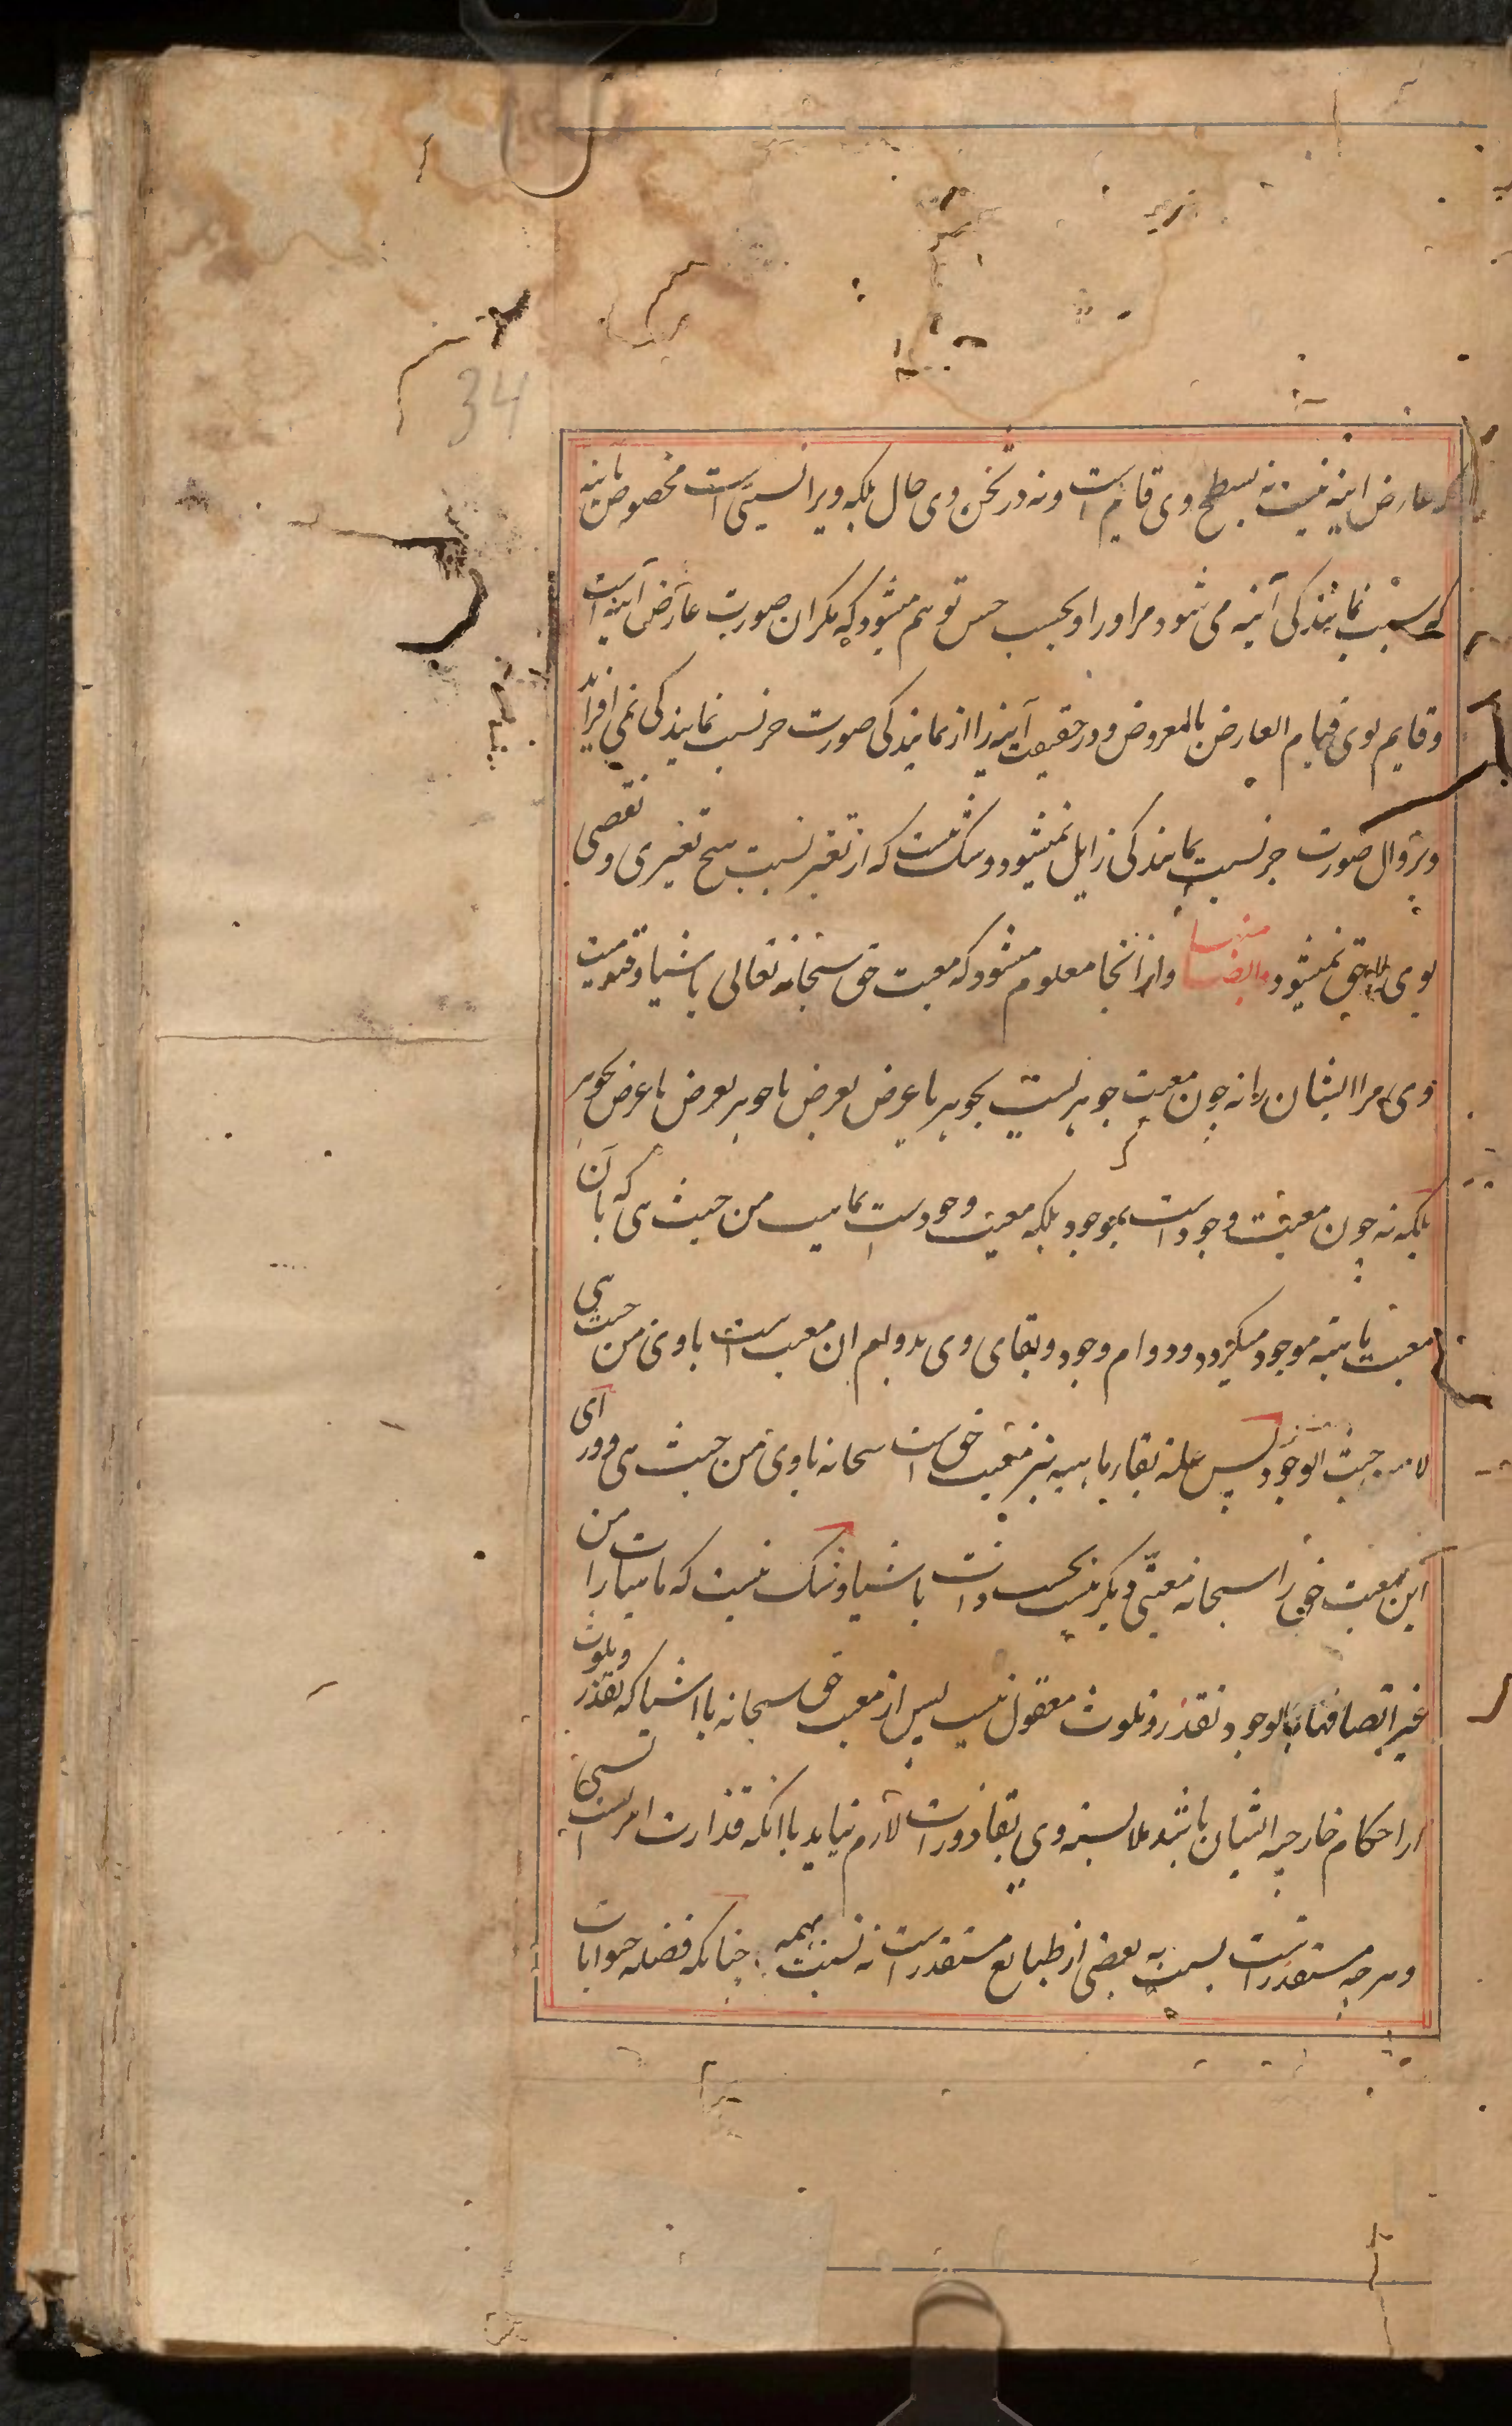 34
که عارض اینه نیست نه بسطح وی قایم است و نه در ثخن وی حال بلکه ویرا نسبتی است مخصوص باینه
که سبب نمایندکی آینه می شود مر او را و بحسب حس توهم میشود که مکر ان صورت عارض آینه است
و قایم بوی قیام العارض بالمعروض و در حقیقت آینه را از نمایندکی صورت جز نسبت نمایندکی نمی افزاید
و بزوال صورت جز نسبت نمایندکی زایل نمیشود و شک نیست که از تغیر نسبت هیچ تغییری و نقصی
بوی لاحق نمیشود منها ایضا و از انجا معلوم میشود که معیت حق سبحانه تعالی باشیا و قیومیت
وی مر ایشان را نه چون معیت جوهر است بجوهر یا عرض بعرض یا جوهر بعرض یا عرض بجوهر
بلکه نه چون معیت وجود است بموجود بلکه معیت وجود است بماهیت من حیث هی که بآن
معیت ماهیه موجود میکردد و دوام وجود و بقای وی بدوام ان معیت است با وی من حیث هی
لا من حیث الوجود پس علة بقاء ماهیه نیز معیت حق است سبحانه با وی من حیث هی و ورای
این معیت حق را سبحانه معیتی دیکر نیست بحسب ذات باشیا و شک نیست که ماهیات را من
غیر اتصافها بالوجود تقذر و تلوث معقول نیست پس از معیت حق سبحانه با اشیا که تقذر و تلوث
از احکام خارجیه ایشان باشد ملابسه وی بقاذورات لازم نیاید با انکه قذارت امریست نسبی
و هر چه مستقذر است نسبت به بعضی از طبایع مستقذر است نه نسبت بهمه چنانکه فضله حیوانات